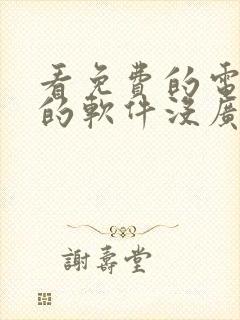 看免費的電
的軟件沒廣
謝壽堂